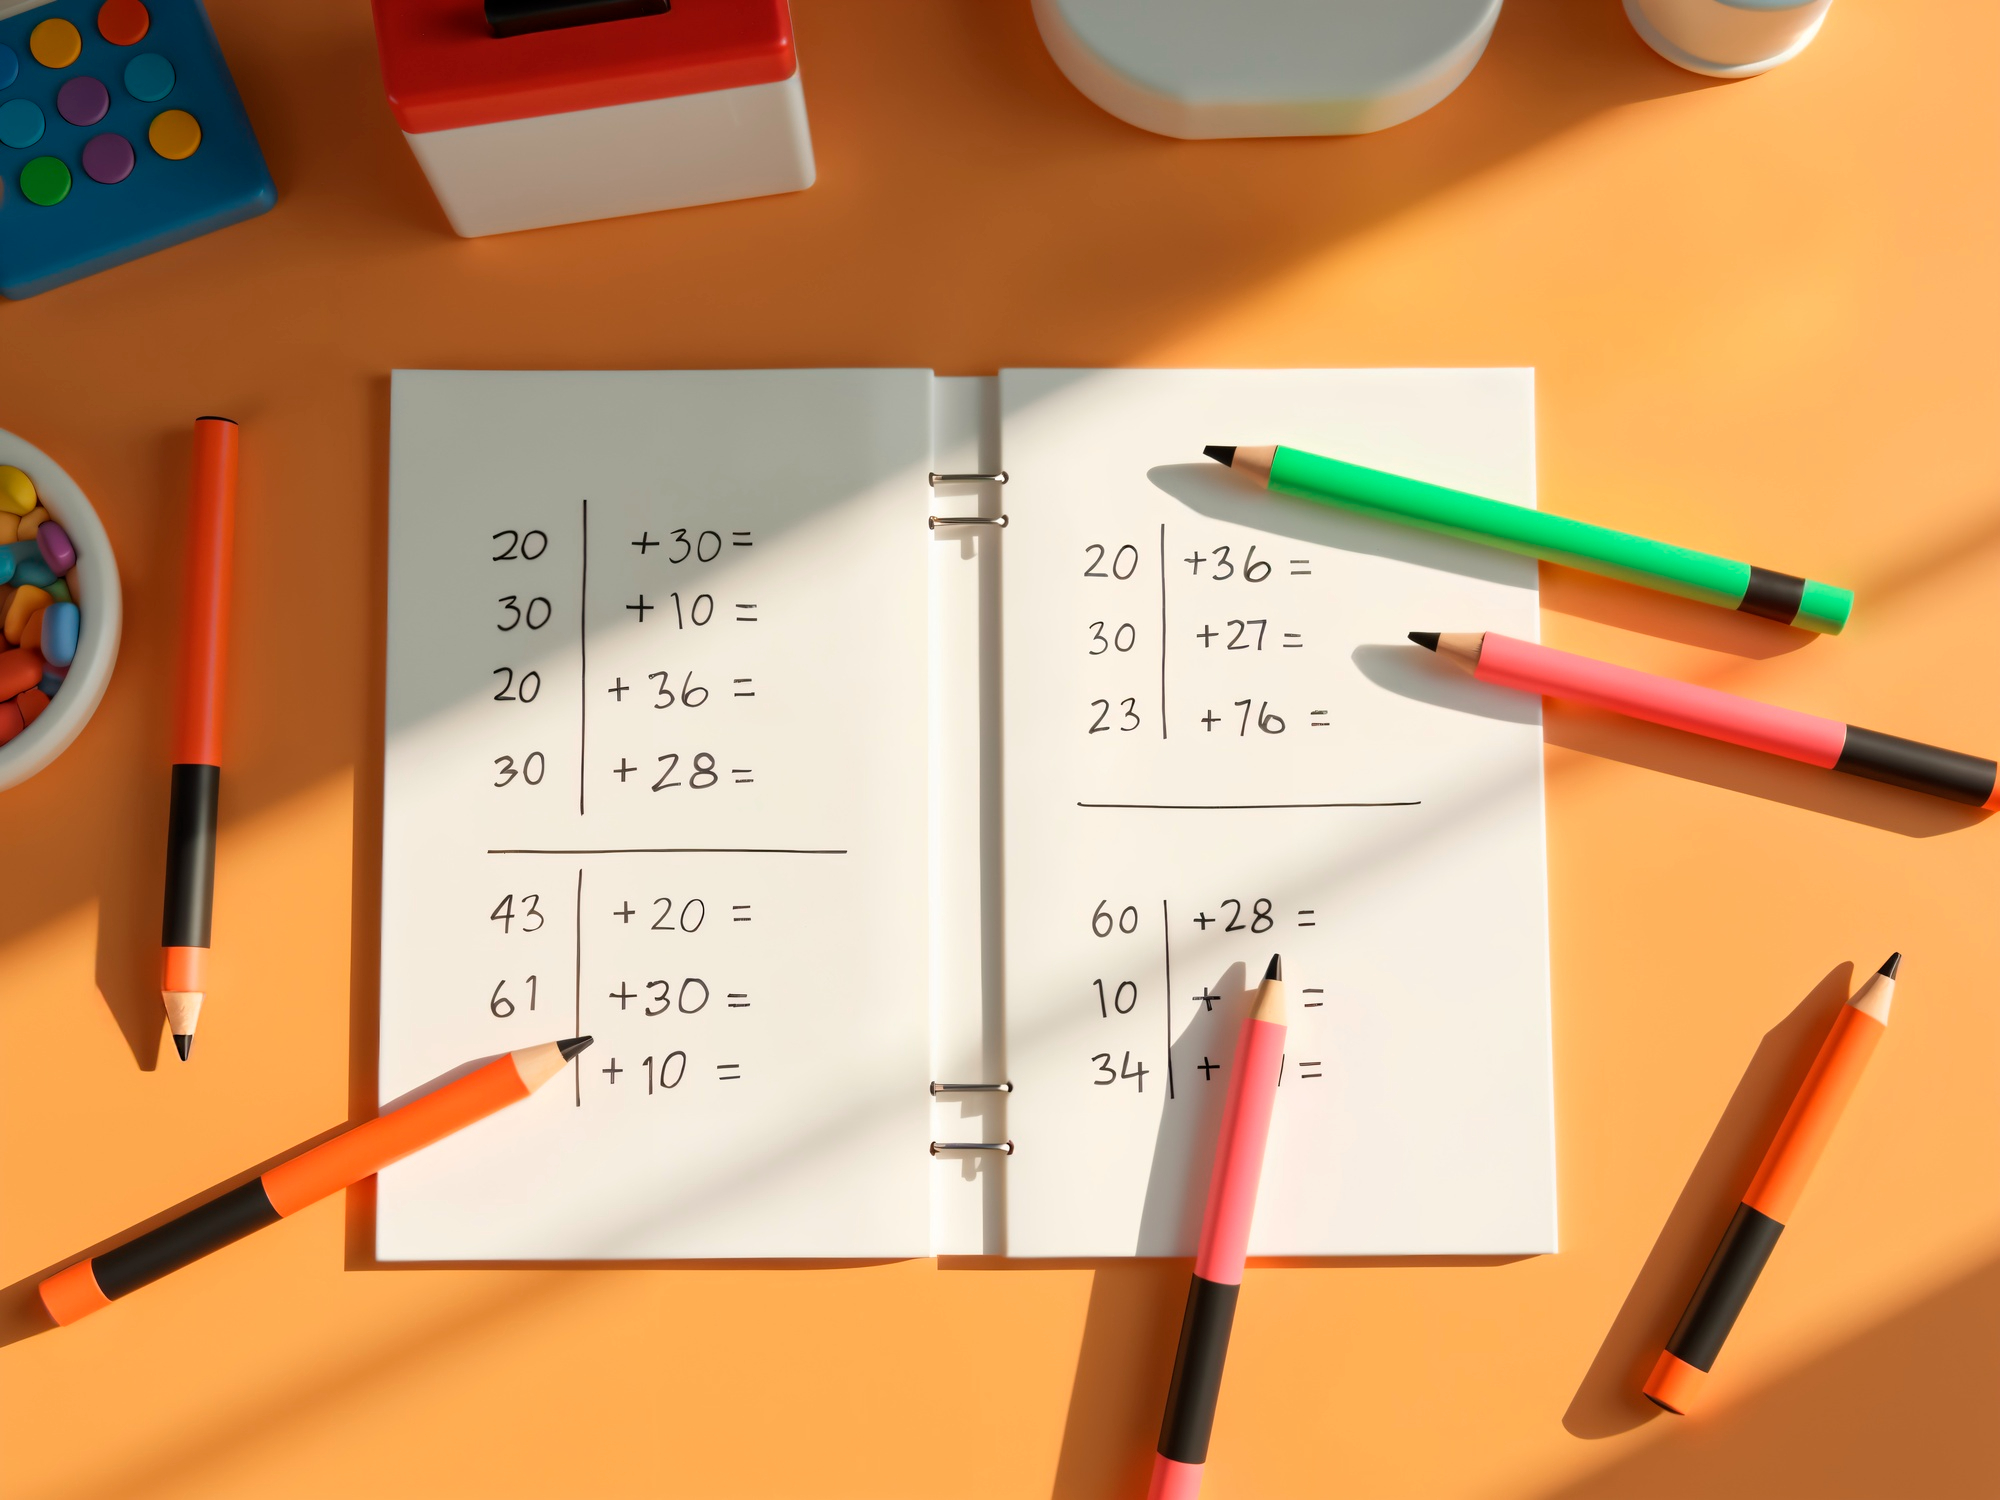 20 | +30 =
30 | + 10 =
20 | + 36 =
30 | + 28 =
43 | + 20 =
61 | +30 =
| + 10 =
20 | +36 =
30 | +27 =
23 | +76 =
60 | +28 =
10 | + =
34 | + =